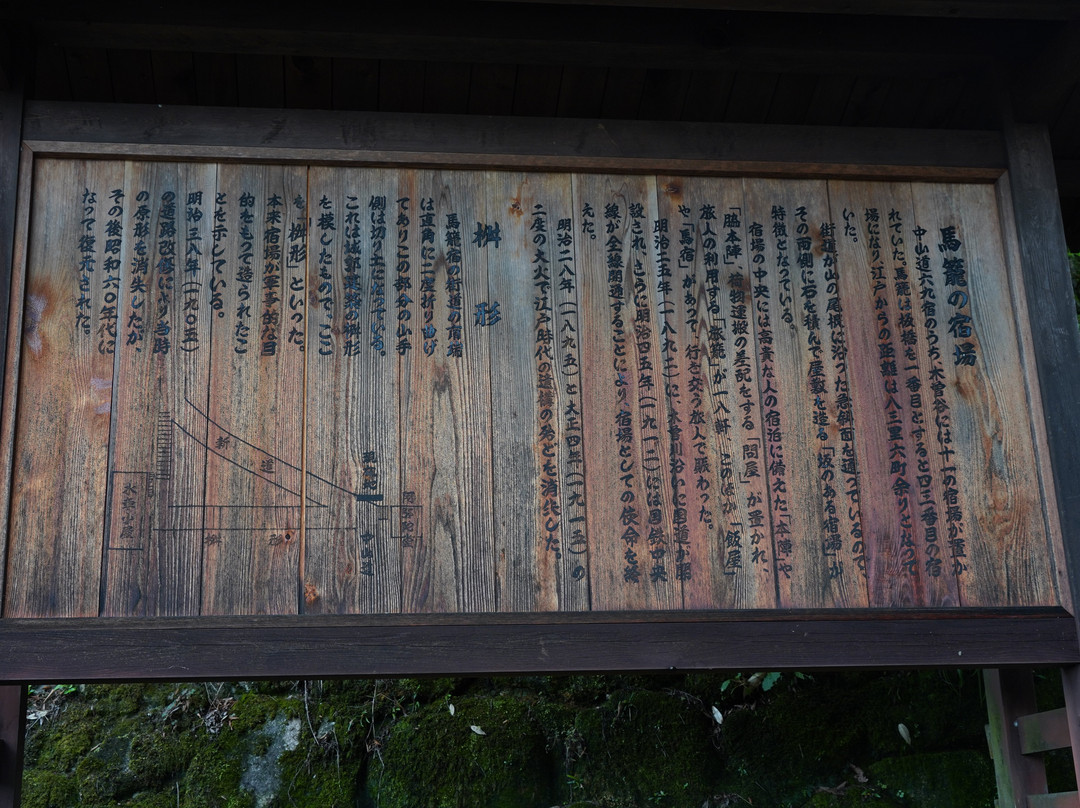 馬籠の宿場
中山道六九宿のうち、木曽谷には十一の宿場が置か
れていた。馬籠は板橋を一番目とすると四三番目の宿
場になり江戸からの距離は八三里六町余りとなって
いた。
街道が山の尾根に沿った急斜面を通っているので、
その両側に石を積んで屋敷を造る「坂のある宿場」が
特徴となっている。
宿場の中央には高貴な人の宿泊に備えた「本陣」や
「脇本陣」、荷物運搬の差配をする「問屋」が置かれ、
旅人の利用する「旅籠」が一八軒、このほか「飯屋」
や「馬宿」があって、行き交う旅人で賑わった。
明治二五年(一八九二)に、木曽川沿いに国道が開
設され、さらに明治四五年(一九一二)には国鉄中央
線が全線開通することにより、宿場としての使命を終
えた。
明治二八年(一八九五)と大正四年(一九一五)の
二度の大火で江戸時代の遺構の殆どを消失した。
桝形
馬籠宿の街道の南端
は直角に二度折り曲げ
てありこの部分の山手
側は切り立たっている。
これは城郭建築の桝形
を模したもので、ここ
を「桝形」といった。
本来宿場が軍事的な目
的をもって造られたこ
とを示している。
明治三八年(一九〇五)
の道路改修により当時
の原形を消失したが、
その後昭和六〇年代に
なって復元された。
新道
現在地
中山道
桝形
水車小屋